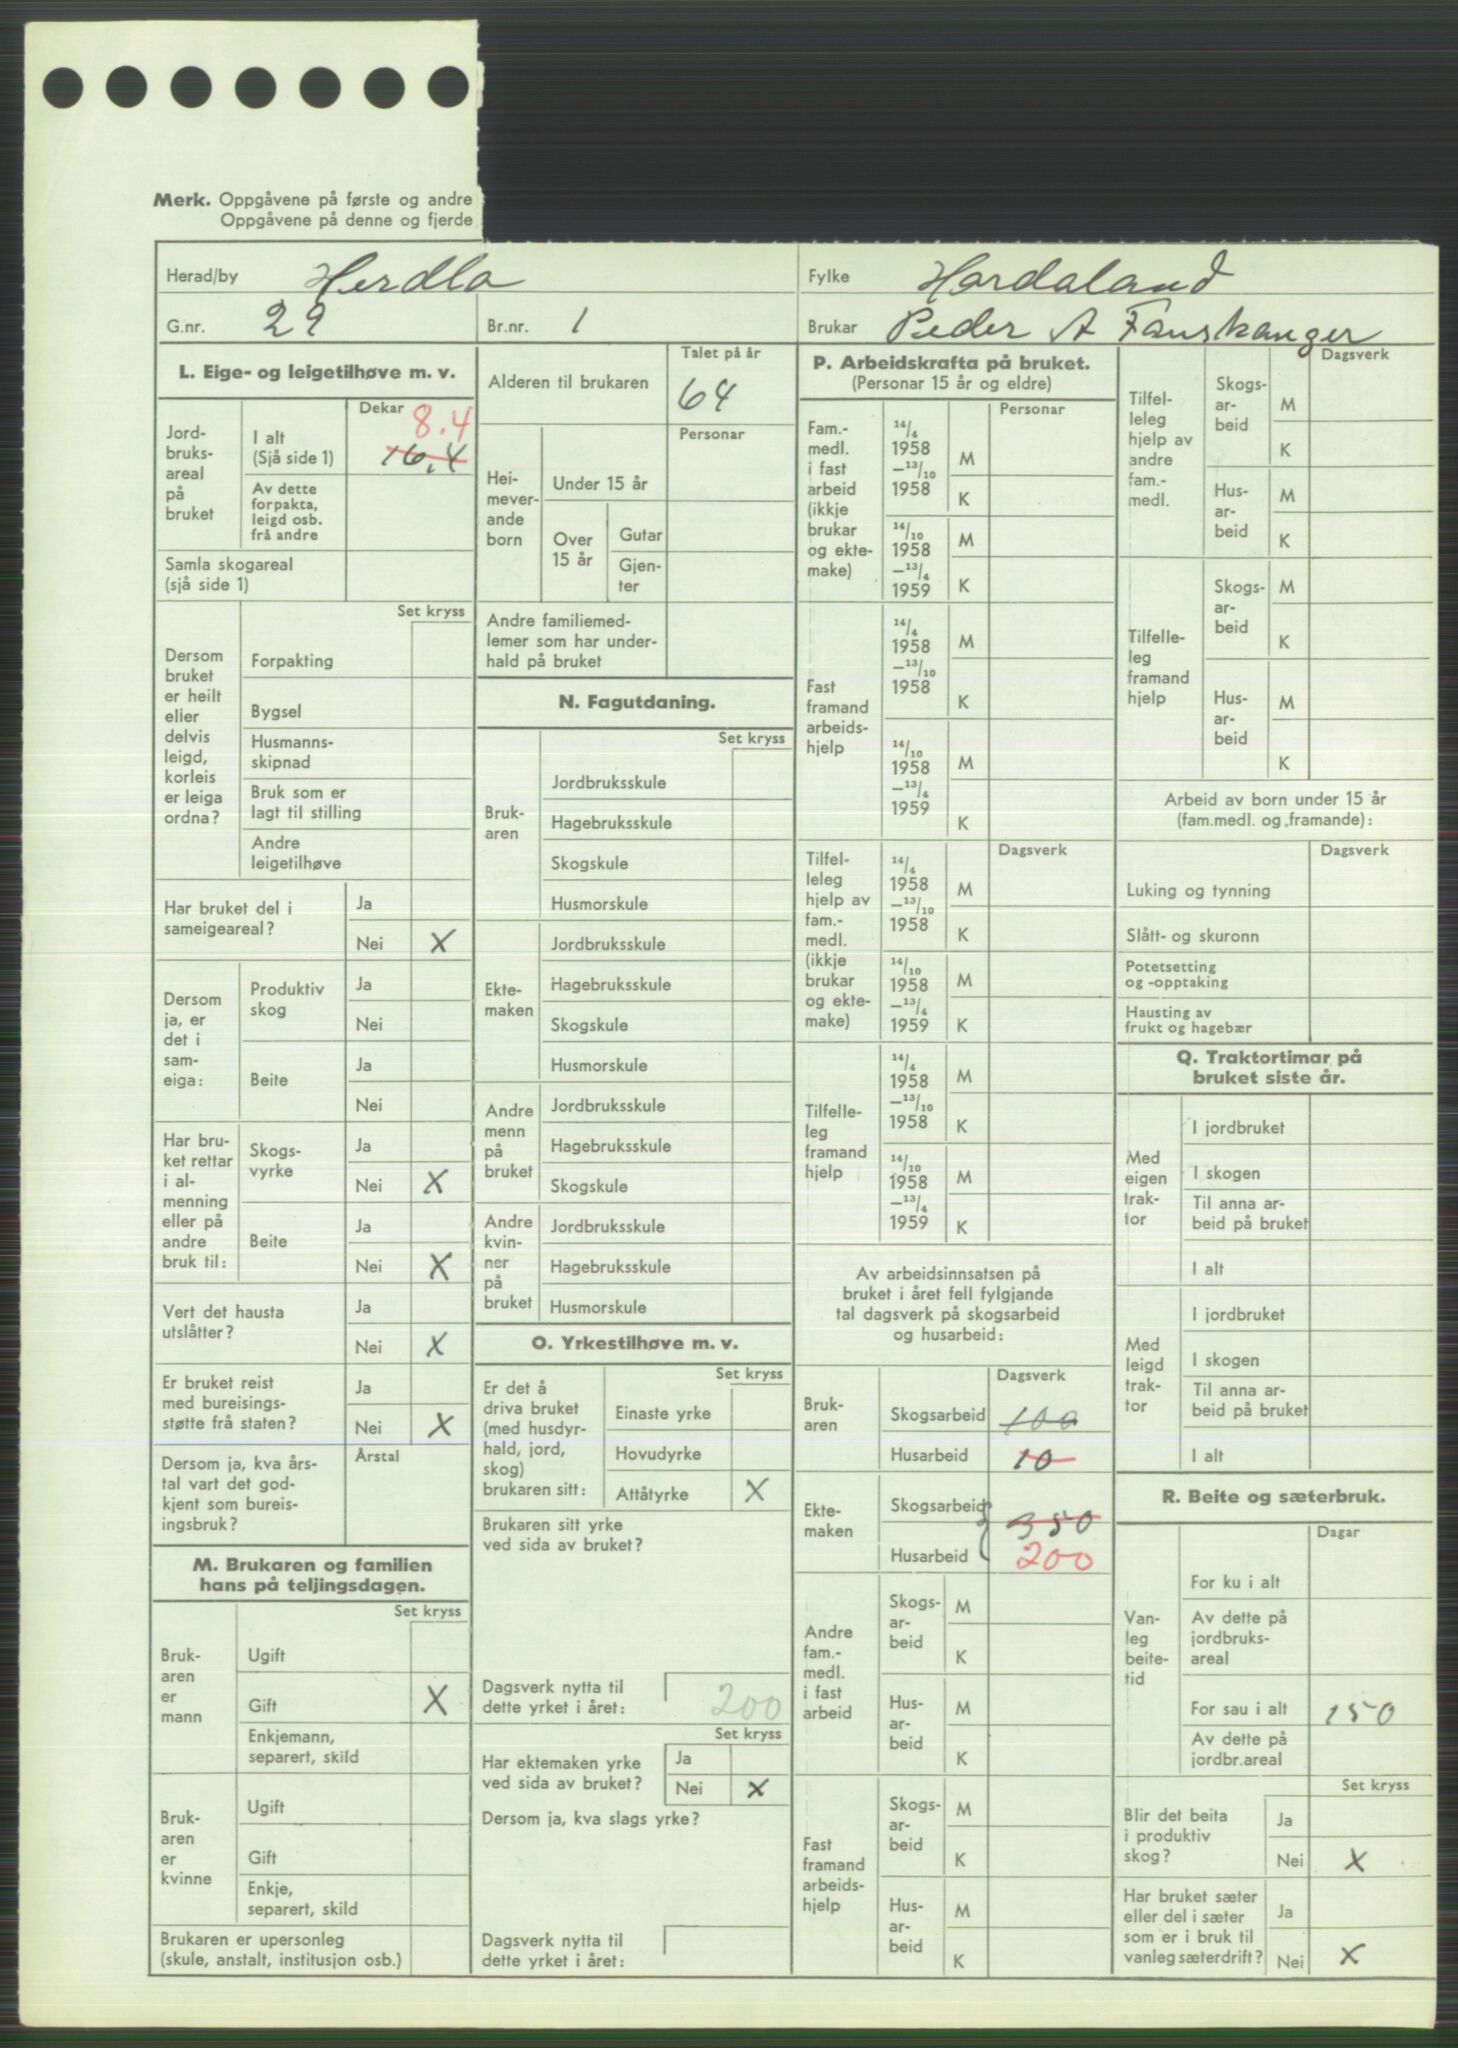 Merk. Oppgåvene på første og andre
Oppgåvene på denne og fjerde
Herad/by Herdla
Fylke Hordaland
G.nr. 29
Br.nr. 1
Brukar Peder A Fauskanger
L. Eige- og leigetilhøve m. v.
Dekar
Jord-
bruks-
areal
på
bruket
I alt
(Sjå side 1)
8.4
16,4
Av dette
forpakta,
leigd osb.
frå andre
Samla skogareal
(sjå side 1)
Set kryss
Dersom
bruket
er heilt
eller
delvis
leigd,
korleis
er leiga
ordna?
Forpakting
Bygsel
Husmanns-
skipnad
Bruk som er
lagt til stilling
Andre
leigetilhøve
Har bruket del i
sameigeareal?
Ja
Nei X
Dersom
ja, er
det i
sam-
eiga:
Produktiv
skog
Ja
Nei
Beite
Ja
Nei
Har bru-
ket rettar
i al-
menning
eller på
andre
bruk til:
Skogs-
vyrke
Ja
Nei X
Beite
Ja
Nei X
Vert det hausta
utslåtter?
Ja
Nei X
Er bruket reist
med bureisings-
støtte frå staten?
Ja
Nei X
Dersom ja, kva års-
tal vart det god-
kjent som bureis-
ingsbruk?
Årstal
M. Brukaren og familien
hans på teljingsdagen.
Set kryss
Bruk-
aren
er
mann
Ugift
Gift X
Enkjemann,
separert, skild
Bruk-
aren
er
kvinne
Ugift
Gift
Enkje,
separert, skild
Brukaren er upersonleg
(skule, anstalt, institusjon osb.)
Talet på år
Alderen til brukaren 64
Personar
Hei-
mever-
ande
born
Under 15 år
Over
15 år
Gutar
Gjen-
ter
Andre familiemed-
lemer som har under-
hald på bruket
N. Fagutdaning.
Set kryss
Bruk-
aren
Jordbruksskule
Hagebruksskule
Skogskule
Husmorskule
Ekte-
maken
Jordbruksskule
Hagebruksskule
Skogskule
Husmorskule
Andre
menn
på
bruket
Jordbruksskule
Hagebruksskule
Skogskule
Andre
kvin-
ner
på
bruket
Jordbruksskule
Hagebruksskule
Husmorskule
O. Yrkestilhøve m. v.
Set kryss
Er det å
driva bruket
(med husdyr-
hald, jord,
skog)
brukaren sitt:
Einaste yrke
Hovudyrke
Attåtyrke X
Brukaren sitt yrke
ved sida av bruket?
Dagsverk nytta til
dette yrket i året: 200
Set kryss
Har ektemaken yrke
ved sida av bruket?
Ja
Nei X
Dersom ja, kva slags yrke?
Dagsverk nytta til
dette yrket i året:
P. Arbeidskrafta på bruket.
(Personar 15 år og eldre)
Personar
Fam.-
medl.
i fast
arbeid
(ikkje
brukar
og ekte-
make)
14/4
1958
–13/10
1958
M
K
14/10
1958
–13/4
1959
M
K
Fast
framand
arbeids-
hjelp
14/4
1958
–13/10
1958
M
K
14/10
1958
–13/4
1959
M
K
Dagsverk
Tilfel-
leleg
hjelp av
fam.-
medl.
(ikkje
brukar
og ekte-
make)
14/4
1958
–13/10
1958
M
K
14/10
1958
–13/4
1959
M
K
Tilfelle-
leg
framand
hjelp
14/4
1958
–13/10
1958
M
K
14/10
1958
–13/4
1959
M
K
Av arbeidsinnsatsen på
bruket i året fell fylgjande
tal dagsverk på skogsarbeid
og husarbeid:
Dagsverk
Bruk-
aren
Skogsarbeid 100
Husarbeid 10
Ekte-
maken
Skogsarbeid
350
Husarbeid
200
Andre
fam.-
medl.
i fast
arbeid
Skogs-
ar-
beid
M
K
Hus-
ar-
beid
M
K
Fast
framand
arbeids-
hjelp
Skogs-
ar-
beid
M
K
Hus-
ar-
beid
M
K
Dagsverk
Tilfel-
leleg
hjelp av
andre
fam.-
medl.
Skogs-
ar-
beid
M
K
Hus-
ar-
beid
M
K
Tilfelle-
leg
framand
hjelp
Skogs-
ar-
beid
M
K
Hus-
ar-
beid
M
K
Arbeid av born under 15 år
(fam.medl. og framande):
Dagsverk
Luking og tynning
Slått- og skuronn
Potetsetting
og -opptaking
Hausting av
frukt og hagebær
Q. Traktortimar på
bruket siste år.
Med
eigen
trak-
tor
I jordbruket
I skogen
Til anna ar-
beid på bruket
I alt
Med
leigd
trak-
tor
I jordbruket
I skogen
Til anna ar-
beid på bruket
I alt
R. Beite og sæterbruk.
Dagar
Van-
leg
beite-
tid
For ku i alt
Av dette på
jordbruks-
areal
For sau i alt 150
Av dette på
jordbr.areal
Set kryss
Blir det beita
i produktiv
skog?
Ja
Nei X
Har bruket sæter
eller del i sæter
som er i bruk til
vanleg sæterdrift?
Ja
Nei X